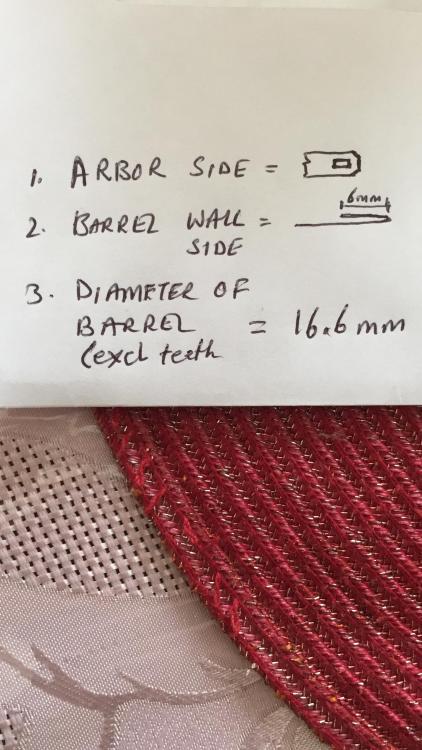 1. ARBOR SIDE =
6mm
2. BARREL WALL =
SIDE
3. DIAMETER OF
BARREL = 16.6 mm
(excl teeth